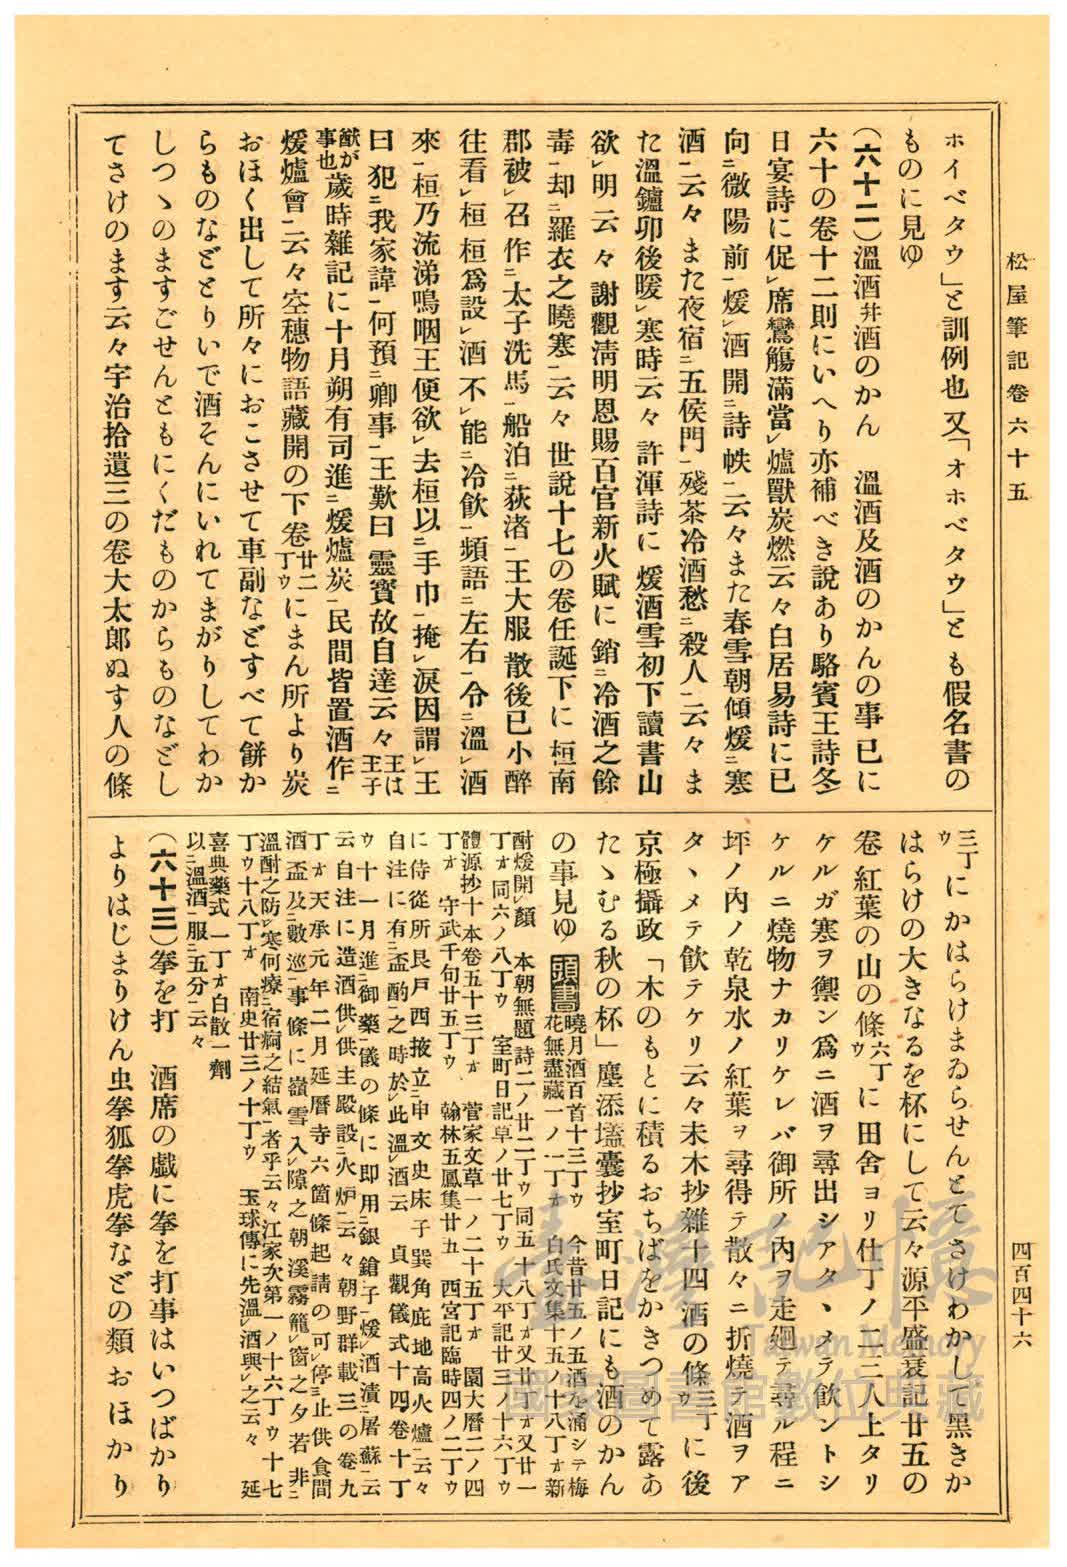 松屋筆記卷六十五
四百四十六
ホイベタウ」と訓例也又「オホベタウ」とも假名書の
ものに見ゆ
(六十二)溫酒幷酒のかん　溫酒及酒のかんの事已に
六十の卷十二則にいへり亦補べき說あり駱賓王詩冬
日宴詩に促㆑席鸞觴滿當㆑爐獸炭燃云々白居易詩に已
向㆓微陽前㆒煖㆑酒開㆓詩帙㆒云々また春雪朝傾煖㆓寒
酒㆒云々また夜宿㆓五侯門㆒殘茶冷酒愁㆓殺人㆒云々ま
た溫鑪卯後暖㆑寒時云々許渾詩に煖酒雪初下讀書山
欲㆑明云々謝觀淸明恩賜百官新火賦に銷㆓冷酒之餘
毒㆒却㆓羅衣之曉寒㆒云々世說十七の卷任誕下に桓南
郡被㆑召作㆓太子洗馬㆒船泊㆓荻渚㆒王大服散後已小醉
往看㆑桓桓爲設㆑酒不㆑能㆓冷飮㆒頻語㆓左右㆒令㆓溫㆑酒
來㆒桓乃流涕嗚咽王便欲㆑去桓以㆓手巾㆒掩㆑淚因謂㆑王
曰犯㆓我家諱㆒何預㆓卿事㆒王歎曰靈寶故自達云々王は王子
猷が事也歲時雜記に十月朔有司進㆓煖爐炭㆒民間皆置酒作㆓
煖爐會㆒云々空穗物語藏開の下卷廿二丁ウにまん所より炭
おほく出して所々におこさせて車副などすべて餠か
らものなどとりいで酒そんにいれてまがりしてわか
しつゝのますごせんともにくだものからものなどし
てさけのます云々宇治拾遺三の卷大太郎ぬす人の條
三丁ウにかはらけまゐらせんとてさけわかして黑きか
はらけの大きなるを杯にして云々源平盛衰記廿五の
卷紅葉の山の條六丁ウに田舍ヨリ仕丁ノ二三人上タリ
ケルガ寒ヲ禦ン爲ニ酒ヲ尋出シアタヽメテ飮ントシ
ケルニ燒物ナカリケレバ御所ノ內ヲ走廻テ尋ル程ニ
坪ノ內ノ乾泉水ノ紅葉ヲ尋得テ散々ニ折燒テ酒ヲア
タヽメテ飮テケリ云々夫木抄雜十四酒の條三丁ウに後
京極攝政「木のもとに積るおちばをかきつめて露あ
たゝむる秋の杯」塵添壒囊抄室町日記にも酒のかん
の事見ゆ 頭書 曉月酒百首十三丁ウ　今昔廿五ノ五酒を涌シテ梅
花無盡藏一ノ一丁オ　白氏文集十五ノ十八丁オ新
酎煖開㆑顏　本朝無題詩二ノ廿二丁ウ同五十八丁オ又廿丁オ又廿一
丁オ同六ノ八丁ウ　室町日記草ノ廿七丁ウ　大平記廿三ノ十六丁ウ
體源抄十本卷五十三丁オ　菅家文草一ノ二十五丁オ　園大曆二ノ四
丁オ　守武千句廿五丁ウ　翰林五鳳集廿五　西宮記臨時四ノ二丁ウ
に侍從所艮戶西掖立㆓申文史床子㆒巽角庇地高火爐㆒云々
自注に有㆓盃酌㆒之時於㆑此溫㆑酒云　貞觀儀式十四卷十丁
ウ十一月進㆓御藥㆒儀の條に卽用㆓銀鎗子㆒煖㆑酒漬㆓屠蘇㆒云
云自注に造酒供㆑供主殿設㆓火爐㆒云々朝野群載三の卷九
丁オ天承元年二月延曆寺六箇條起請の可㆑停㆓止供食間
酒盃及㆓數巡㆒事條に嶺雪入㆑隙之朝溪霧籠㆑窗之夕若非㆓
溫酎之防㆑寒何療㆓宿痾之結氣㆒者乎云々江家次第一ノ十六丁ウ十七
丁ウ十八丁オ　南史廿三ノ十丁ウ　玉球傳に先溫㆑酒與㆑之云々　延
喜典藥式一丁オ白散一劑
以㆓溫酒㆒服㆓五分㆒云々
(六十三)拳を打　酒席の戲に拳を打事はいつばかり
よりはじまりけん虫拳狐拳虎拳などの類おほかり
臺灣記憶
Taiwan Memory
國家圖書館數位典藏